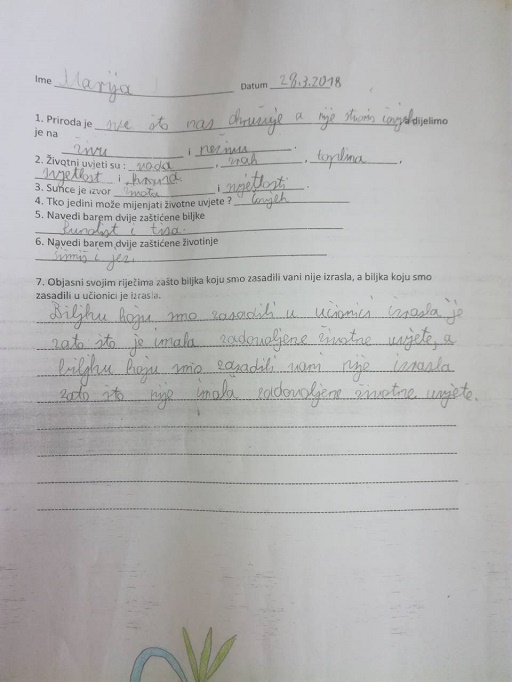 Ime Marija Datum 28.3.2018
1. Priroda je sve što nas okružuje a nije stvorio čovjek dijelimo
je na živu i neživu.
2. Životni uvjeti su : voda , zrak , toplina ,
svjetlost i hrana
3. Sunce je izvor i svjetlosti .
4. Tko jedini može mijenjati životne uvjete ? čovjek
5. Navedi barem dvije zaštićene biljke
Runolist i tisa.
6. Navedi barem dvije zaštićene životinje
i jež.
7. Objasni svojim riječima zašto biljka koju smo zasadili vani nije izrasla, a biljka koju smo
zasadili u učionici je izrasla.
Biljku koju smo zasadili u učionici izrasla je
zato što je imala zadovoljene životne uvjete, a
biljku koju smo zasadili vani nije izrasla
zato što nije imala zadovoljene životne uvjete.